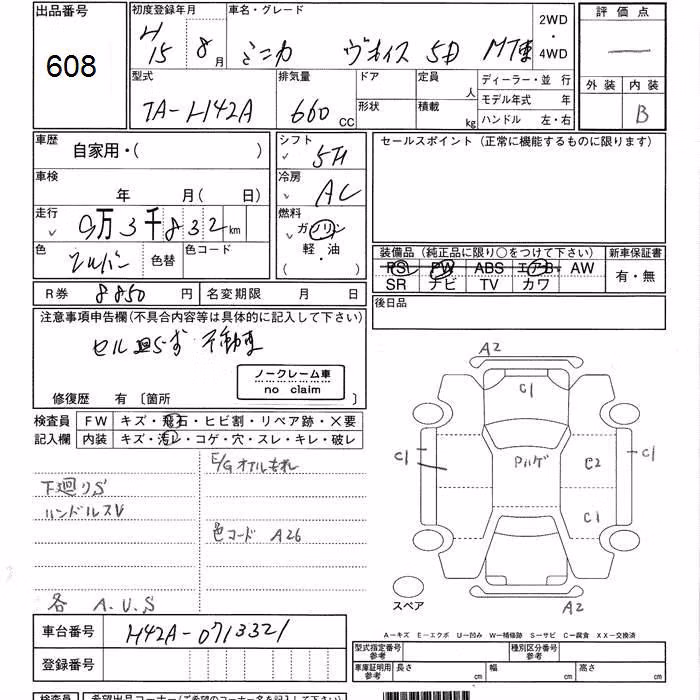 出品番号 608
初度登録年月 H15 8月
車名・グレード ミニカ ヴォイス 5D MT車
2WD ・ 4WD
型式 TA-H42A
排気量 660 CC
ドア 形状
定員 人 積載 kg
ディーラー・並行
モデル年式 年
ハンドル 左・右
評価点 —
外装 内装 B
車歴 自家用・( )
シフト 5F
車検 年 月( 日)
冷房 AC
走行 9万3千832km
燃料 ガソリン 軽・油 ( ・ )
色 シルバー 色替 色コード
R券 8850 円 名変期限 月 日
セールスポイント (正常に機能するものに限ります)
装備品 (純正品に限り○をつけて下さい)
PS PW ABS エアB AW
SR ナビ TV カワ
新車保証書 有・無
後日品
注意事項申告欄(不具合内容等は具体的に記入して下さい)
セル回らず 不動車
ノークレーム車
no claim
修復歴 有 〔箇所 〕
検査員記入欄
FW キズ・飛石・ヒビ割・リペア跡・×要
内装 キズ・汚レ・コゲ・穴・スレ・キレ・破レ
E/Gオイルもれ
下廻りS
ハンドルスレ
色コード A26
各 A.U.S
A2
C1
C1
Pルゲ
C2
C1
C1
A2
スペア
A―キズ E―エクボ U―凹み W―補修跡 S―サビ C―腐食 XX―交換済
車台番号 H42A-0713321
登録番号
型式指定番号 参考
種別区分番号 参考
車庫証明用 参考 長さ cm 幅 cm 高さ cm
検査員 希望出品コーナー(ご希望のコーナー名を記入して下さい)